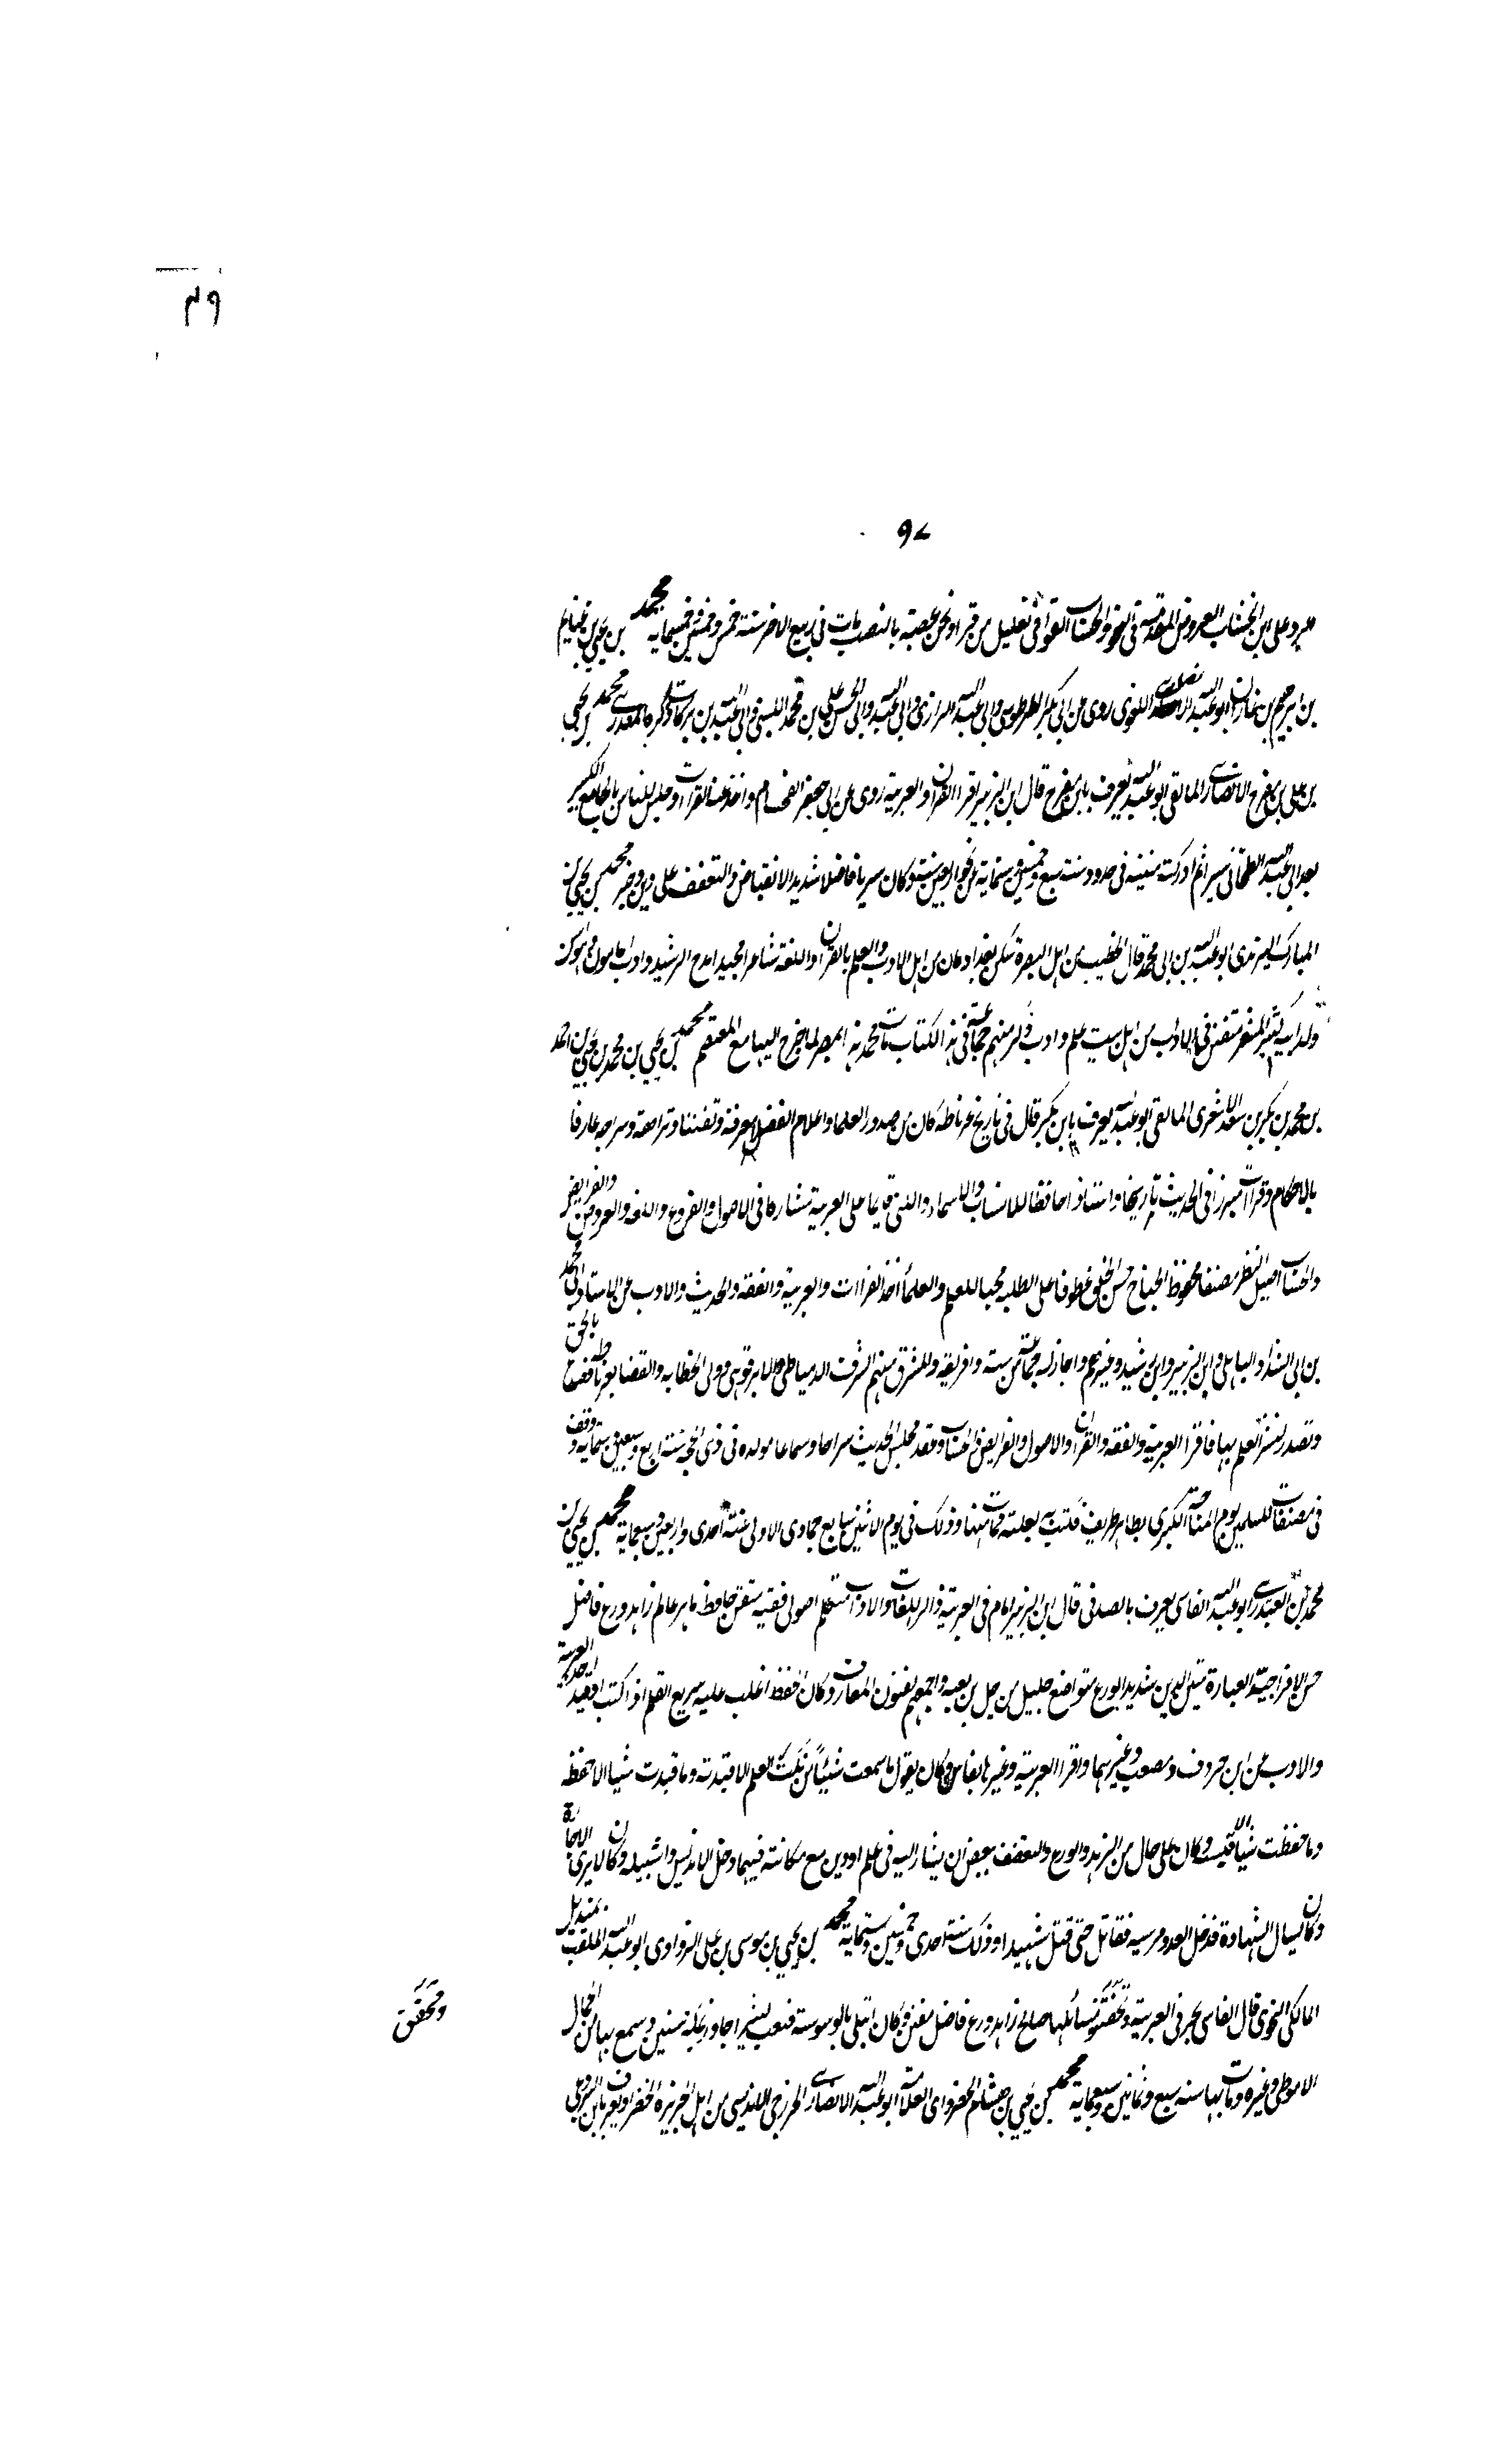 ٤٩
٩٧
الرد على ابن الخشاب العروض المقدمة في النحو والحساب القوافي تعليل من قرا ونحن عصبة بالنصب مات في ربيع الاخر سنة خمس وخمسين وخمسماية محمد بن يحيى بن غنايم
بن ابو عبد الله اللغوى روى عن ابى بكر الطرطوسى وابى عبد الله الرازى وابى الحسن على بن محمد بن بركات ذكره المنذرى محمد بن يحيى
بن على بن مفرج الانصارى المالقى ابو عبد الله يعرف بابن مفرج قال ابن الزبير اقرا القران والعربية روى عن ابى جعفر الفحام واخذ عنه القراات وجلس للناس بالجامع الكبير
بعد ابى عبد الله الطنجالى يسيرا ثم ادركته منيته فى حدود سنة سبع وخمسين وستماية عن نحو اربعين سنة وكان سريا فاضلا شديد الانقباض والتعفف على دين وخير محمد بن يحيى بن
المبارك اليزيدى ابو عبد الله بن ابى محمد قال الخطيب من اهل البصرة سكن بغداد وكان من اهل الادب والعلم بالقران واللغة شاعرا مجيدا مدح الرشيد وادب المامون
ولد كثير الشعر متفنن فى الاداب من اهل بيت علم وادب ذكر منهم جماعة فى هذا الكتاب مات محمد بمصر لما خرج اليها مع المعتصم محمد بن يحيى بن محمد بن يحيى بن احمد
بن محمد بن بكر بن سعد الاشعرى المالقى ابو عبد الله يعرف بابن بكر قال فى تاريخ غرناطة كان من صدور العلما واعلام الفضلا معرفة وتفننا ونزاهة عارفا
بالاحكام وقراات مبرزا فى الحديث تاريخا واسنادا حافظا للانساب والاسماء والكنى قايما على العربية مشاركا فى الاصول والفروع واللغة والعروض والفرايض
والحساب اصيل النظر منصفا مخفوض الجناح حسن الخلق عطوفا على الطلبة محبا للعلم والعلما اخذ القراات والعربية والفقه والحديث والادب عن الاستاذ ابى محمد
بن ابى السداد الباهلى وابن الزبير وابن رشيد وغيرهم واجاز له جماعة من سبتة وافريقية والمشرق منهم الشرف الدمياطى والابرقوهى وولى الخطابة والقضا بغرناطة فصدع بالحق
وتصدر لنشر العلم بها فاقرا العربية والفقه والقران والاصول والفرايض والحساب وعقد مجلس الحديث شرحا وسماعا مولده فى ذى الحجة سنة اربع وسبعين وستماية وقف
فى مصاف المسلمين يوم المناجزة الكبرى بظاهر طريف فكبت به بغلته فمات منها وذلك فى يوم الاثنين سابع جمادى الاولى سنة احدى واربعين وسبعماية محمد بن يحيى بن
محمد العبدرى ابو عبد الله الفاسى يعرف بالصدفى قال ابن الزبير امام فى العربية ذاكر للغات والاداب متكلم اصولى فقيه متقن حافظ ماهر عالم زاهد ورع فاضل
حسن العبارة متين الدين شديد الورع متواضع جليل من جلة من لقيته واجمعهم لفنون المعارف وكان الحفظ اغلب عليه سريع القلم اذا كتب او قيد اخذ العربية
والادب عن ابن خروف ومصعب وغيرهما واقرا العربية وغيرها بفاس وكان يقول ما سمعت شيئا من نكت العلم الا قيدته وما قيدت شيا الا حفظته
وما حفظت شيا فنسيته وكان على حال من الزهد والورع والتعفف يبغض ان يشار اليه فى علم او دين مع مكانته فيهما دخل الاندلس واشبيلية وكان لا يرى الاجازة
وكان يسال الشهادة فدخل العدو مرسيه فقاتل حتى قتل شهيدا وذلك سنة احدى وخمسين وستماية محمد بن يحيى بن موسى بن على الزواوى ابو عبد الله الملقب بمنديل
المالكى النحوى قال الفاسى بحر فى العربية وتحقيق مسائلها صالح زاهد ورع فاضل مفنن وكان ابتلى بالوسوسة فتعب كثيرا جاور بمكة سنين وسمع بها من الجمال
ومحقق
الاميوطى وغيره ومات بها سنة سبع وثمانين وسبعماية محمد بن يحيى بن هشام الخضراوى العلامة ابو عبد الله الانصارى الخزرجى الاندلسى من اهل الجزيرة الخضرا ويعرف بابن البرذعى